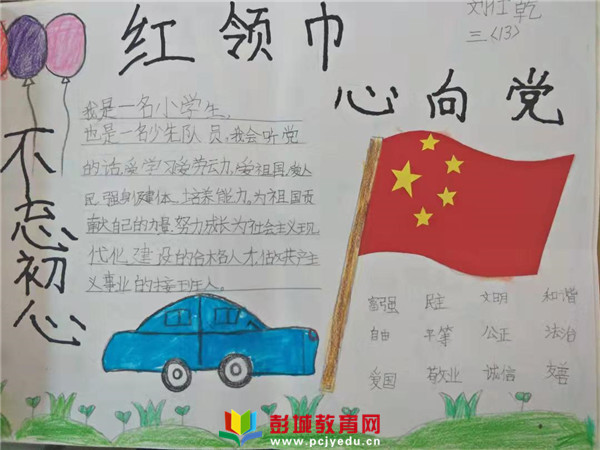 红领巾
心向党
三〈13〉
不忘初心
我是一名小学生,
也是一名少先队员,我会听党
的话,爱学习爱劳动,爱祖国,爱人
民,强身健体、培养能力。为祖国贡
献自己的力量,努力成长为社会主义现
代化建设的合格人才,做共产主
义事业的接班人。
富强 民主 文明 和谐
自由 平等 公正 法治
爱国 敬业 诚信 友善
彭城教育网
www.pcjyedu.cn